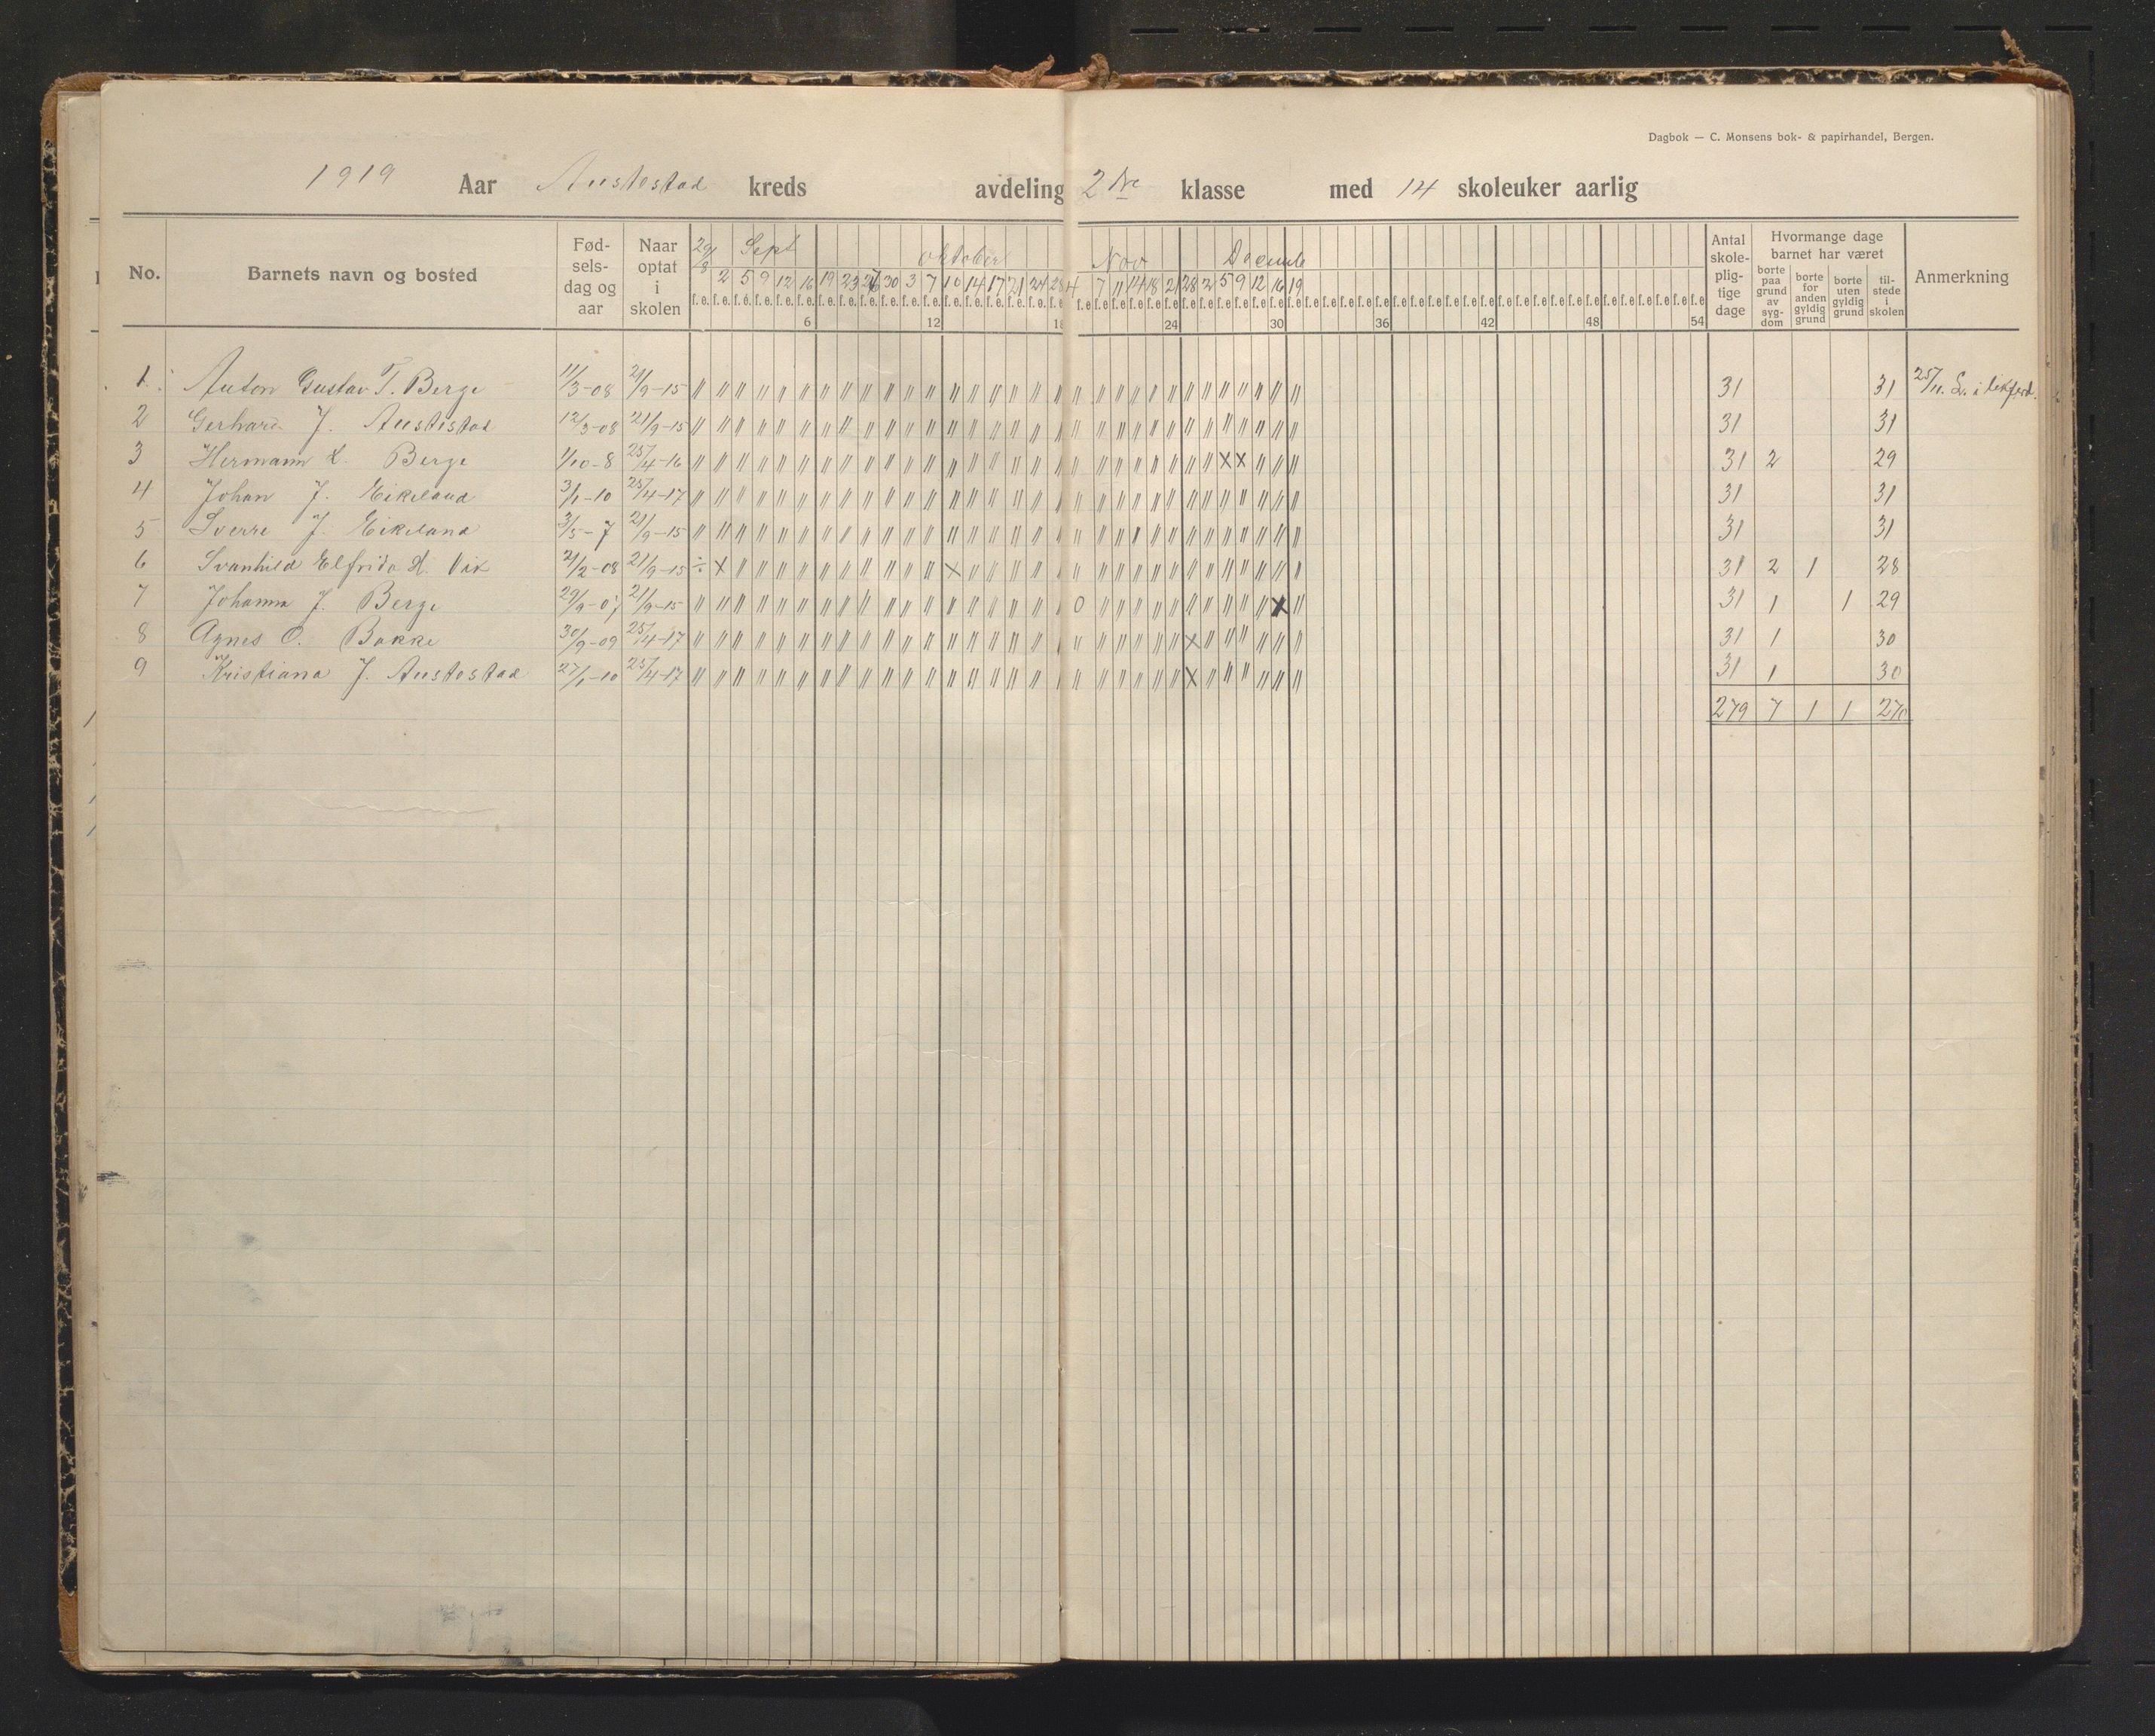 Dagbok — C. Monsens bok- & papirhandel, Bergen.
1919 Aar Austestad kreds avdeling 2dre klasse med 14 skoleuker aarlig
No. Barnets navn og bosted Fødselsdag og aar Naar optat i skolen 29/8 Sept oktober Nov Decemb Antal skolepligtige dage Hvormange dage barnet har været Anmerkning
borte paa grund av sygdom borte for anden gyldig grund borte uten gyldig grund tilstede i skolen
2 5 9 12 16 19 23 26 30 3 7 10 14 17 21 24 28 4 7 11 14 18 21 28 2 5 9 12 16 19
f. e. f. e. f. e. f. e. f. e. f. e. f. e. f. e. f. e. f. e. f. e. f. e. f. e. f. e. f. e. f. e. f. e. f. e. f. e. f. e. f. e. f. e. f. e. f. e. f. e. f. e. f. e. f. e. f. e. f. e. f. e. f. e. f. e. f. e. f. e. f. e. f. e. f. e. f. e. f. e. f. e. f. e. f. e. f. e. f. e. f. e. f. e. f. e. f. e. f. e. f. e. f. e. f. e. f. e.
6 12 18 24 30 36 42 48 54
1 Anton Gustav T. Berge 11/3-08 21/9-15 31 31 25/11. L. i likferd.
2 Gerhard J. Austestad 12/3-08 21/9-15 31 31
3 Hermann L. Berge 1/10-8 25/4-16 X X 31 2 29
4 Johan J. Eikeland 3/1-10 25/4-17 31 31
5 Sverre J. Eikeland 3/5-7 21/9-15 31 31
6 Svanhild Elfrida L. Vik 21/2-08 21/9-15 ÷ X X 31 2 1 28
7 Johanna J. Berge 29/9-07 21/9-15 0 X 31 1 1 29
8 Agnes O. Bakke 30/9-09 25/4-17 X 31 1 30
9 Kristiana J. Austestad 27/1-10 25/4-17 X 31 1 30
279 7 1 1 270